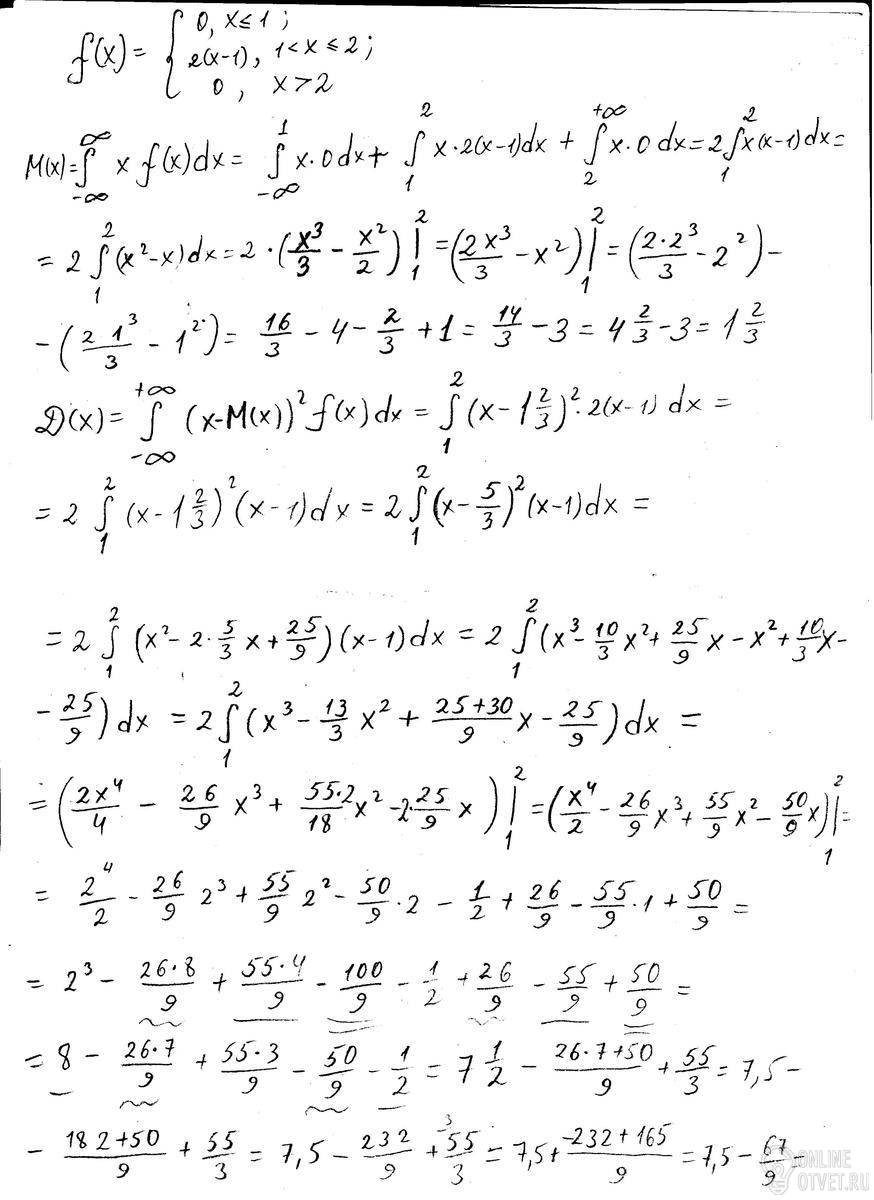 f(x) = { 0, x ≤ 1 ;
2(x-1), 1 < x ≤ 2 ;
0 , x > 2
M(x) = ∫_{-∞}^{∞} x f(x) dx = ∫_{-∞}^{1} x·0 dx + ∫_{1}^{2} x·2(x-1)dx + ∫_{2}^{+∞} x·0 dx = 2∫_{1}^{2} x(x-1)dx =
= 2 ∫_{1}^{2} (x²-x)dx = 2·(x³/3 - x²/2)|_{1}^{2} = (2x³/3 - x²)|_{1}^{2} = (2·2³/3 - 2²) -
- (2 1³/3 - 1²) = 16/3 - 4 - 2/3 + 1 = 14/3 - 3 = 4 2/3 - 3 = 1 2/3
D(x) = ∫_{-∞}^{+∞} (x-M(x))² f(x) dx = ∫_{1}^{2} (x - 1 2/3)²·2(x-1) dx =
= 2 ∫_{1}^{2} (x - 1 2/3)² (x-1)dx = 2 ∫_{1}^{2} (x - 5/3)² (x-1)dx =
= 2 ∫_{1}^{2} (x² - 2·5/3 x + 25/9)(x-1)dx = 2 ∫_{1}^{2} (x³ - 10/3 x² + 25/9 x - x² + 10/3 x -
- 25/9) dx = 2 ∫_{1}^{2} (x³ - 13/3 x² + 25+30/9 x - 25/9) dx =
= (2x⁴/4 - 26/9 x³ + 55·2/18 x² - 2·25/9 x)|_{1}^{2} = (x⁴/2 - 26/9 x³ + 55/9 x² - 50/9 x)|_{1}^{2} =
= 2⁴/2 - 26/9 2³ + 55/9 2² - 50/9·2 - 1/2 + 26/9 - 55/9·1 + 50/9 =
= 2³ - 26·8/9 + 55·4/9 - 100/9 - 1/2 + 26/9 - 55/9 + 50/9 =
= 8 - 26·7/9 + 55·3/9 - 50/9 - 1/2 = 7 1/2 - 26·7+50/9 + 55/3 = 7,5 -
- 182+50/9 + 55/3 = 7,5 - 232/9 + ³55/3 = 7,5 + -232+165/9 = 7,5 - 67/9 =
ONLINE
OTVET.RU